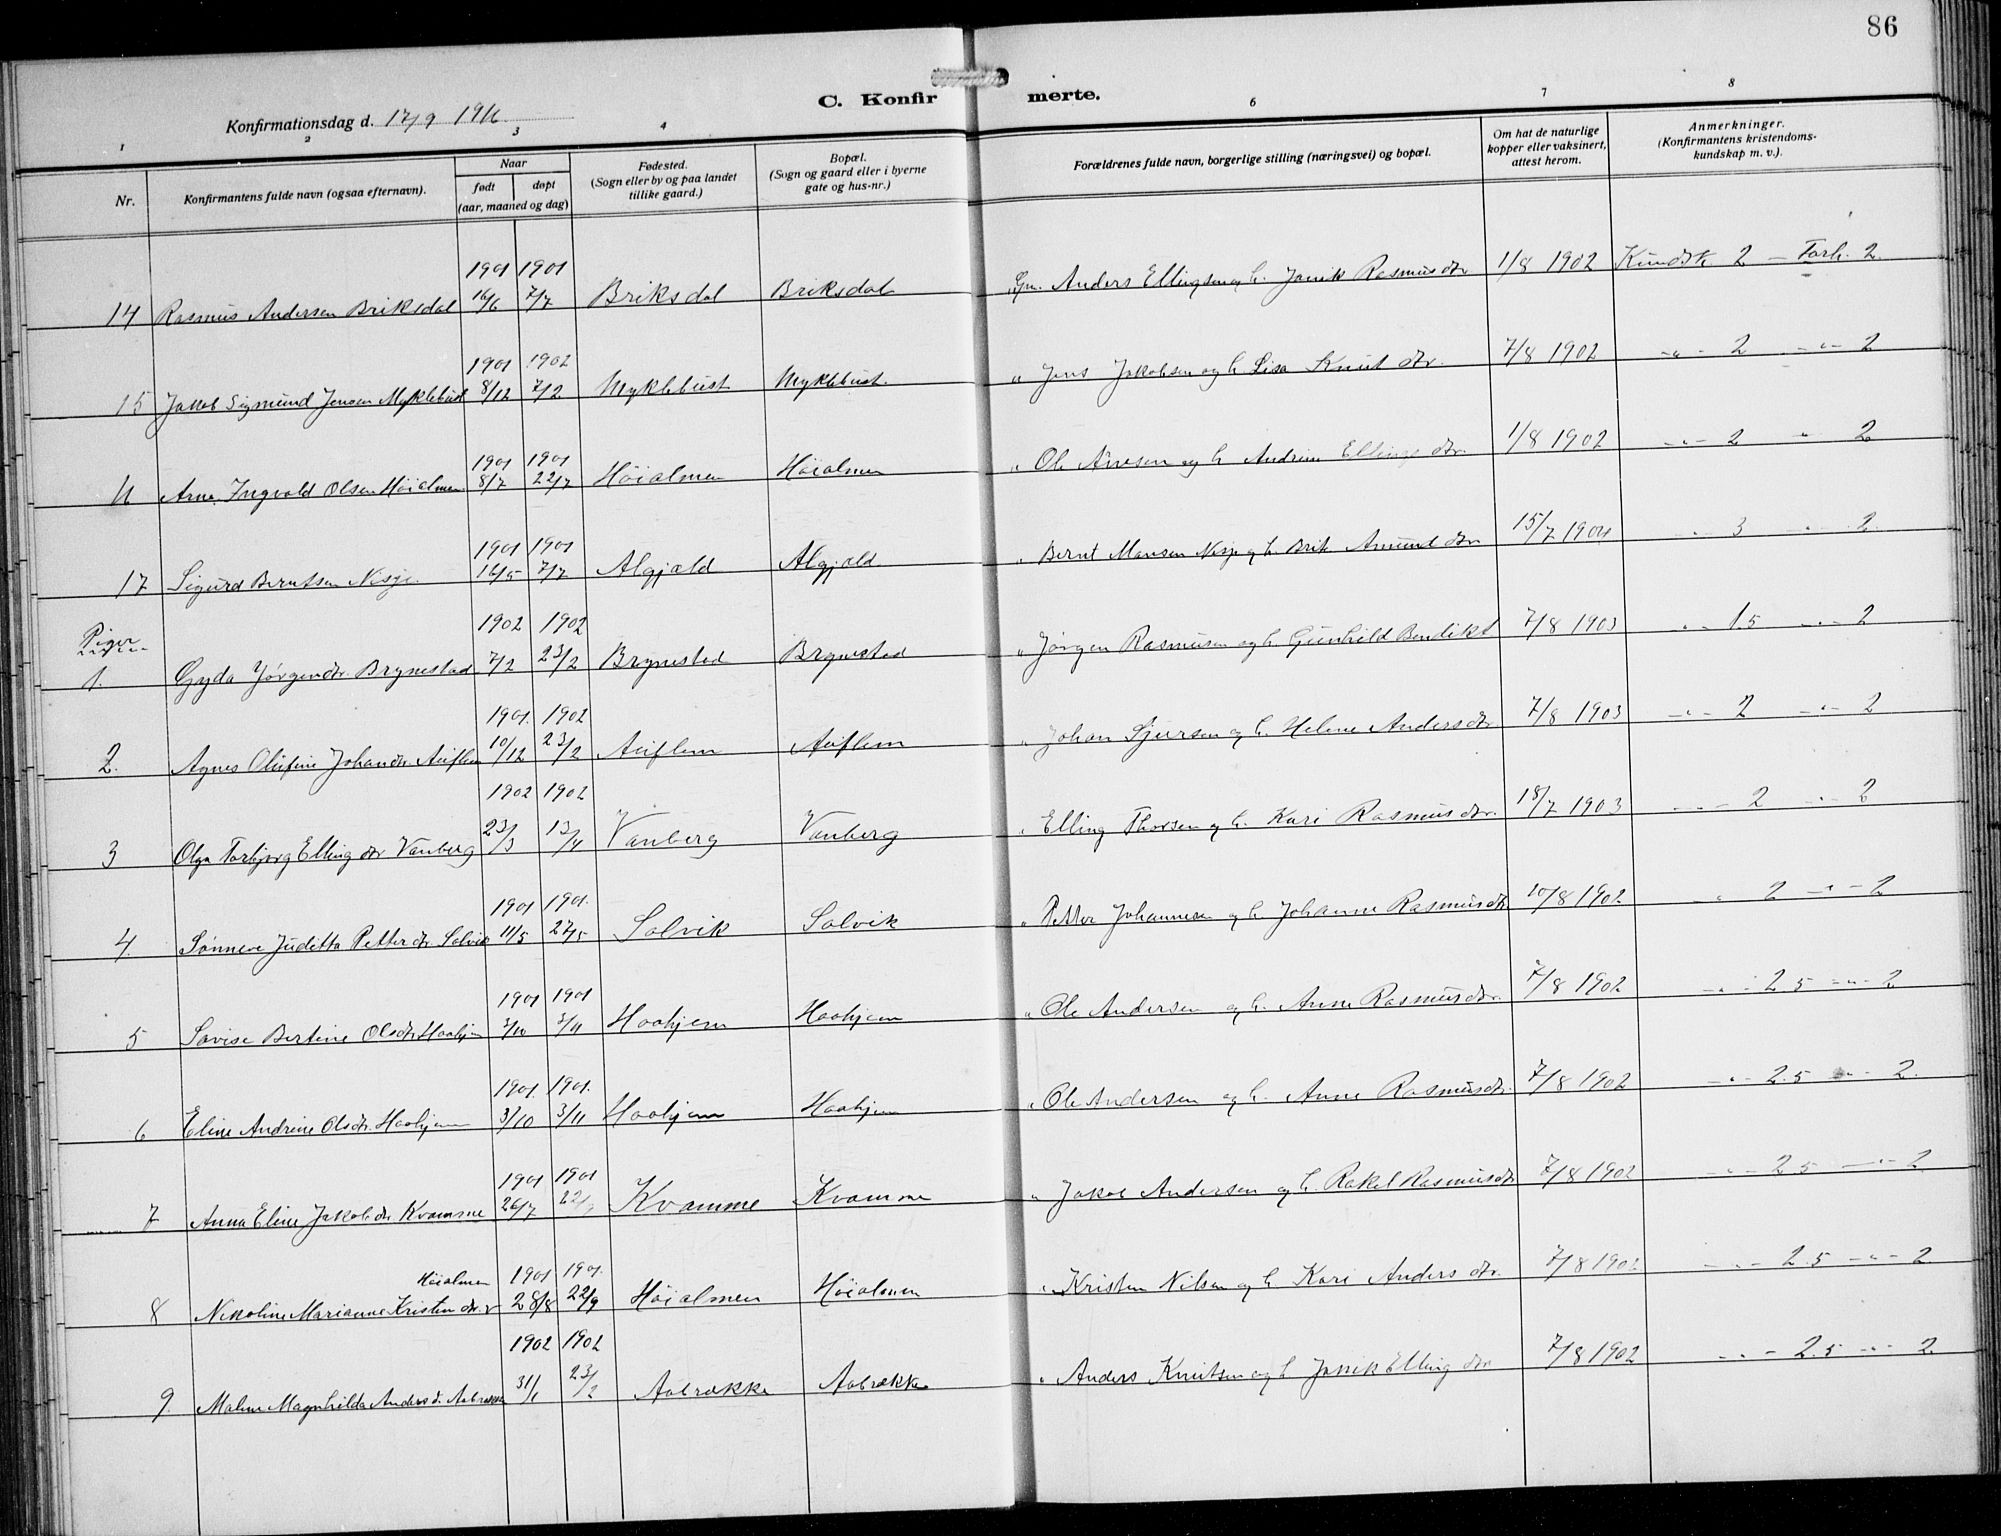 86
C. Konfirmerte.
Konfirmationsdag d. 17/9 1916.
1 2 3 4 6 7 8
Nr.
Konfirmantens fulde navn (ogsaa efternavn).
Naar
født døpt
(aar, maaned og dag)
Fødested.
(Sogn eller by og paa landet
tillike gaard.)
Bopæl.
(Sogn og gaard eller i byerne
gate og hus-nr.)
Forældrenes fulde navn, borgerlige stilling (næringsvei) og bopæl.
Om hat de naturlige
kopper eller vaksinert,
attest herom.
Anmerkninger.
(Konfirmantens kristendoms-
kundskap m. v.).
1901 1901
14 Rasmus Andersen Briksdal 16/6 7/7 Briksdal Briksdal Gm. Anders Ellingsen og h. Jonik Rasmusdtr 1/8 1902 Kundsk. 2 — Forh. 2.
1901 1902
15 Jakob Sigmund Jensen Myklebust 8/12 7/2 Myklebust Myklebust. " Jens Jakobsen og h. Lisa Knutdtr. 7/8 1902 -"- 2 -"- 2
1901 1901
16 Arne Ingvald Olsen Höialmen 8/7 22/7 Höialmen Höialmen " Ole Arnesen og h. Andrine Ellingsdtr. 1/8 1902 -"- 2 " 2
1901 1901
17 Sigurd Berntsen Nesje. 16/5 7/7 Algjæld Algjæld " Bernt Monsen Nesje og h. Brit Amunddtr 15/7 1904 " 3 -"- 2.
Piger
1902 1902
1. Gyda Jørgendtr. Brynestad 7/2 23/2 Brynestad Brynestad " Jørgen Rasmusen og h. Gunhild Bendikt 7/8 1903 -"- 1.5 -"- 2
1901. 1902
2. Agnes Olufine Johandtr. Auflem 10/12 23/2 Auflem Auflem " Johan Sjursen og h. Helene Andersdtr. 7/8 1903 -"- 2 -"- 2
1902 1902
3 Olga Torbjørg Ellingdtr Vanberg 23/3 13/4 Vanberg Vanberg " Elling Thorsen og h. Kari Rasmusdtr. 18/7 1903 -"- 2 -"- 2
1901 1901.
4. Sønneve Juditta Petterdtr. Solvik 11/5 27/5 Solvik Solvik " Petter Johannesen og h. Johanne Rasmusdtr 10/8 1902 -"- 2 -"- 2
1901 1901
5 Lovise Bertine Olsdtr. Haahjem 3/10 3/11 Haahjem Haahjem " Ole Andersen og h. Anne Rasmusdtr. 7/8 1902 -"- 2.5 -"- 2
1901. 1901.
6 Eline Andrine Olsdtr. Haahjem 3/10 3/11 Haahjem Haahjem " Ole Andersen og h. Anne Rasmusdtr. 7/8 1902 -"- 2.5 -"- 2.
1901 1901
7 Anna Eline Jakobdtr Kvamme 26/7 22/ Kvamme Kvamme " Jakob Andersen og h. Rakel Rasmusdtr 7/8 1902 -"- 2.5 -"- 2
Höialmen 1901 1901.
8 Nikoline Marianne Kristendtr. 28/8 22/9 Höialmen Höialmen " Kristen Nilsen og h. Kari Andersdtr. 7/8 1902 -"- 2.5 -"- 2
1902 1902
9. Malene Magnhilda Andersd. Aabrække 31/1 23/2 Aabrække Aabrække " Anders Knutsen og h. Jonik Ellingdtr 7/8 1902 -"- 2.5 -"- 2